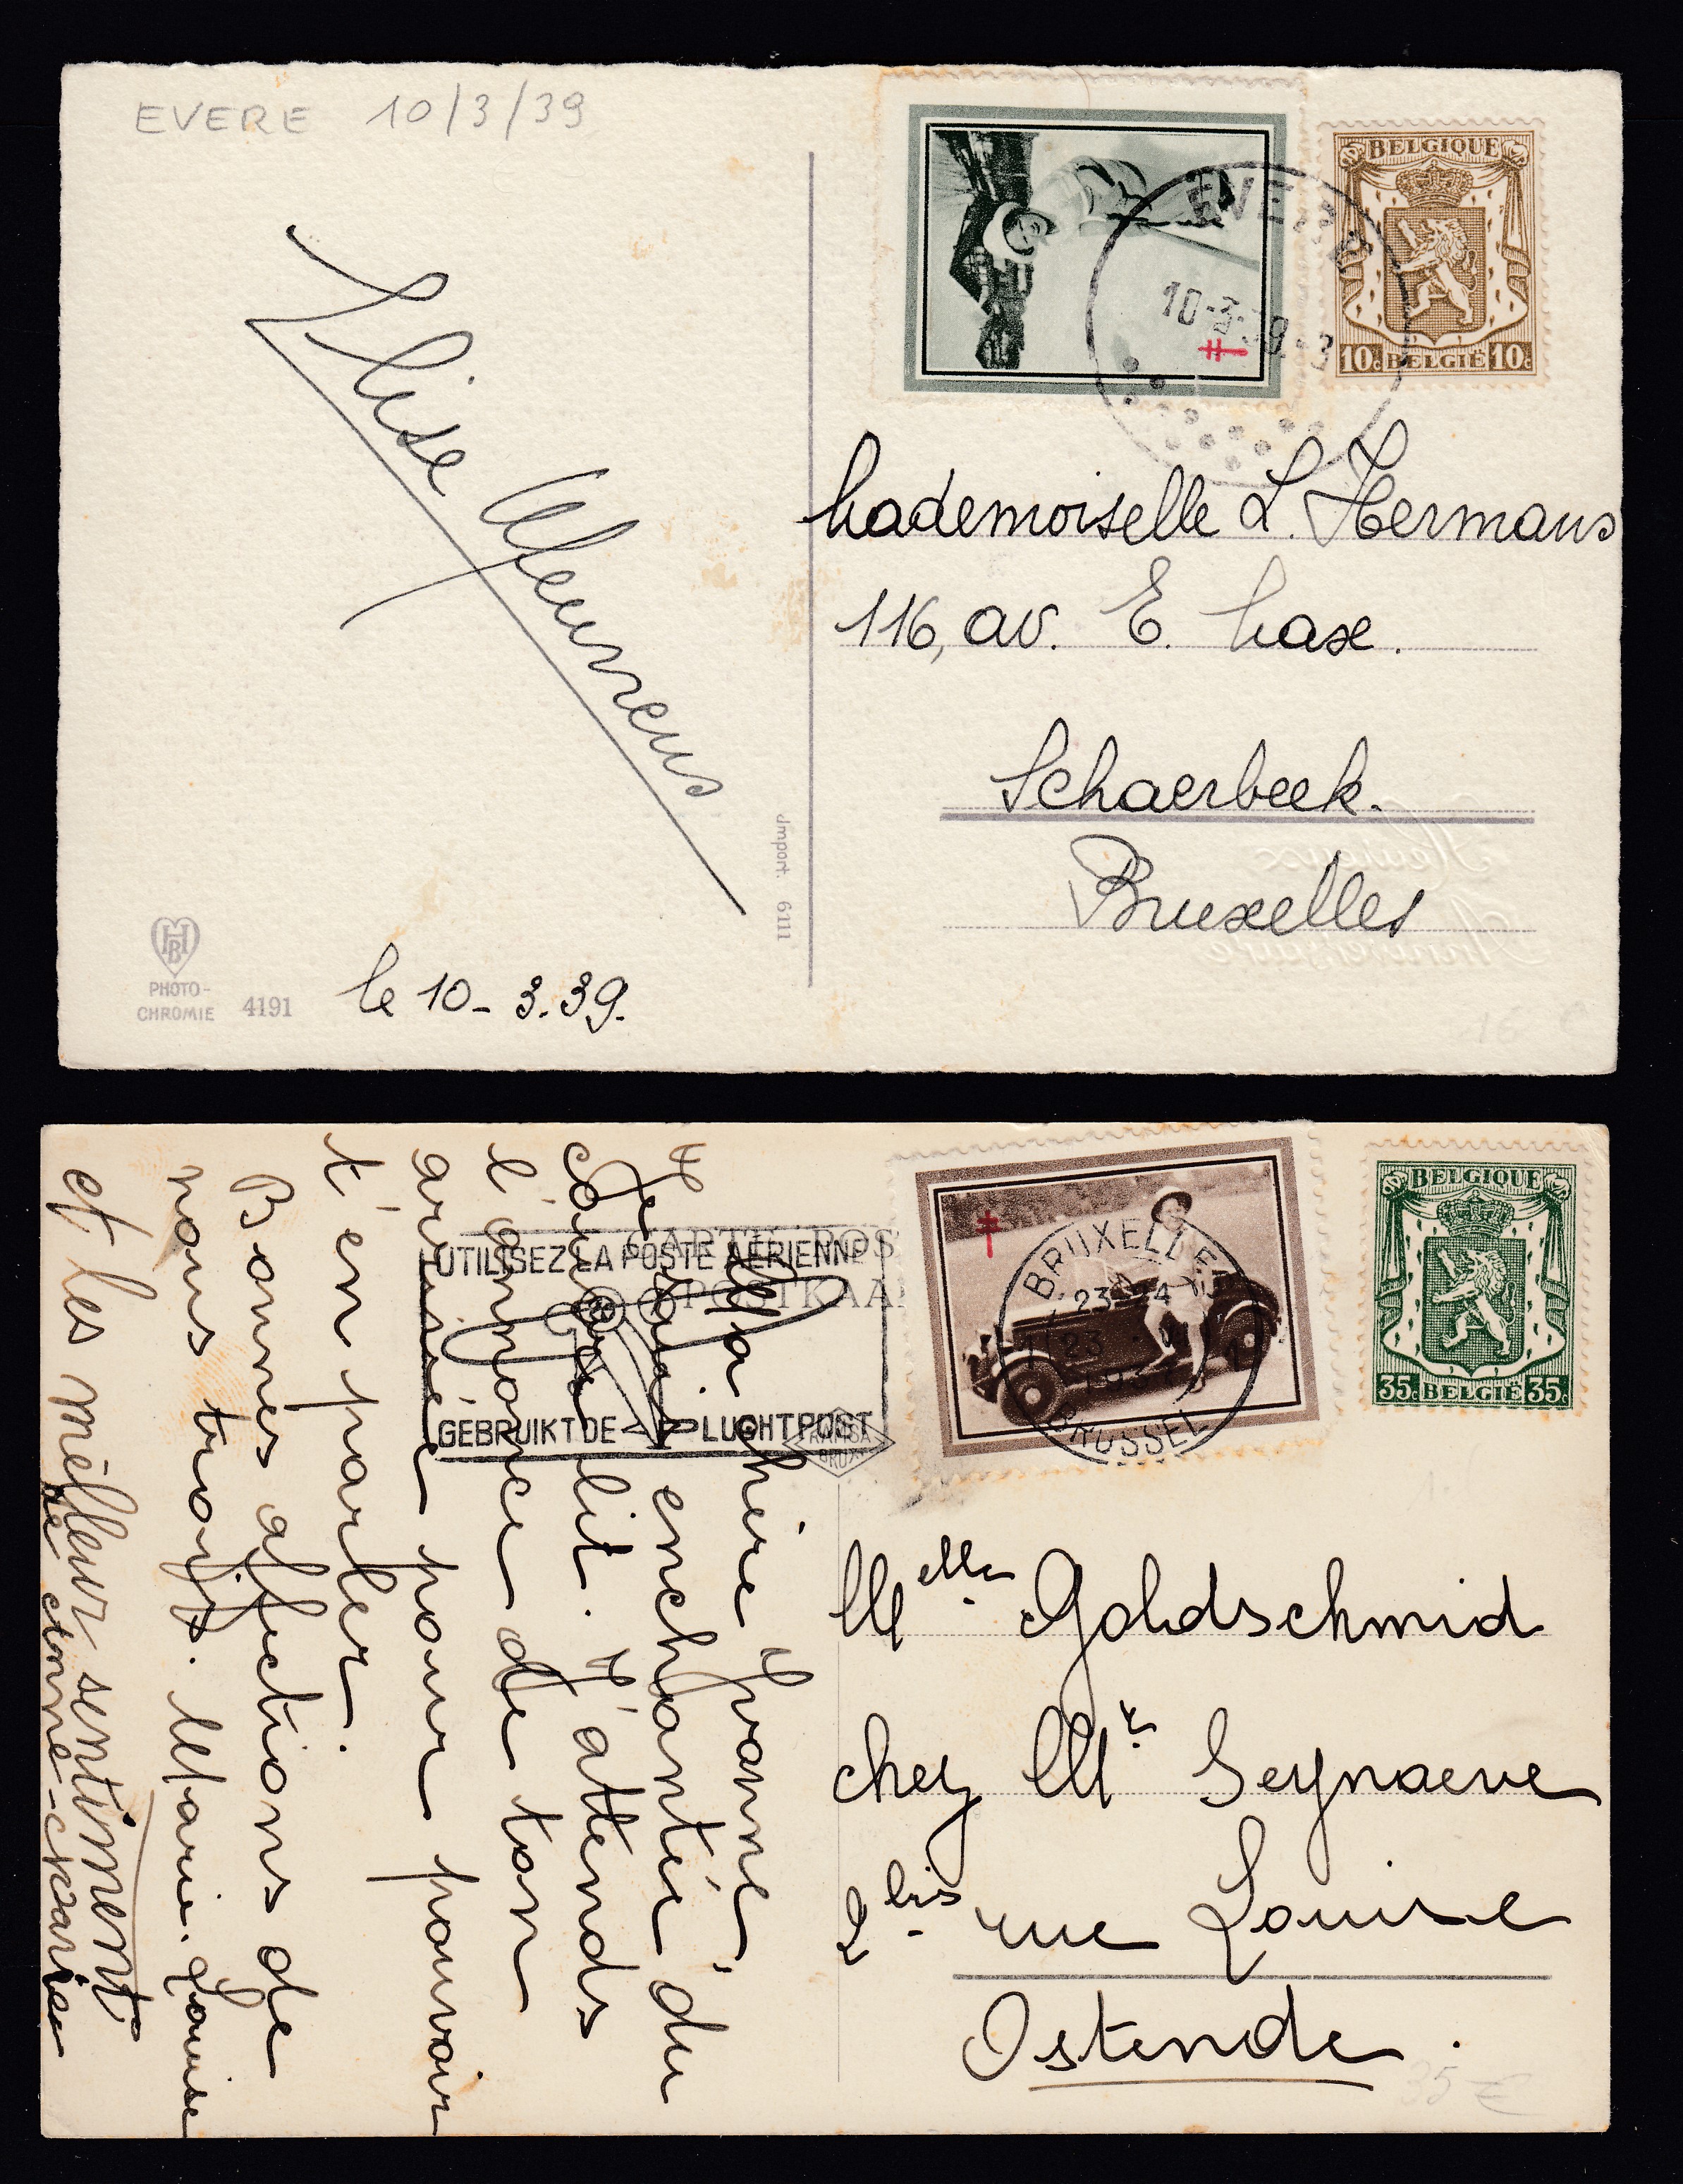 EVERE 10/3/39
BELGIQUE
10c BELGIË 10c
EVERE
10-3-39.-3
Mademoiselle L. Hermans
116, av. E. Max.
Schaerbeek.
Bruxelles
Elise
Import. 6111
HB
PHOTO-
CHROMIE 4191
le 10-3.39.
Heureux
Anniversaire
BELGIQUE
35c BELGIË 35c
BRUXELLES
23-24
23
BRUSSEL
CARTE POS
POSTKAA
UTILISEZ LA POSTE AÉRIENNE
GEBRUIKT DE LUCHTPOST
Melle Goldschmid
chez Mr Seynaeve
2bis rue Louise
Ostende.
35 €
Ma chère Yvonne,
Je suis enchantée du
lit. J'attends
l'annonce de ton
arrivée pour pouvoir
t'en parler.
Bonnes affections de
nous trois. Marie-Louise
et les mèlleur sentiment